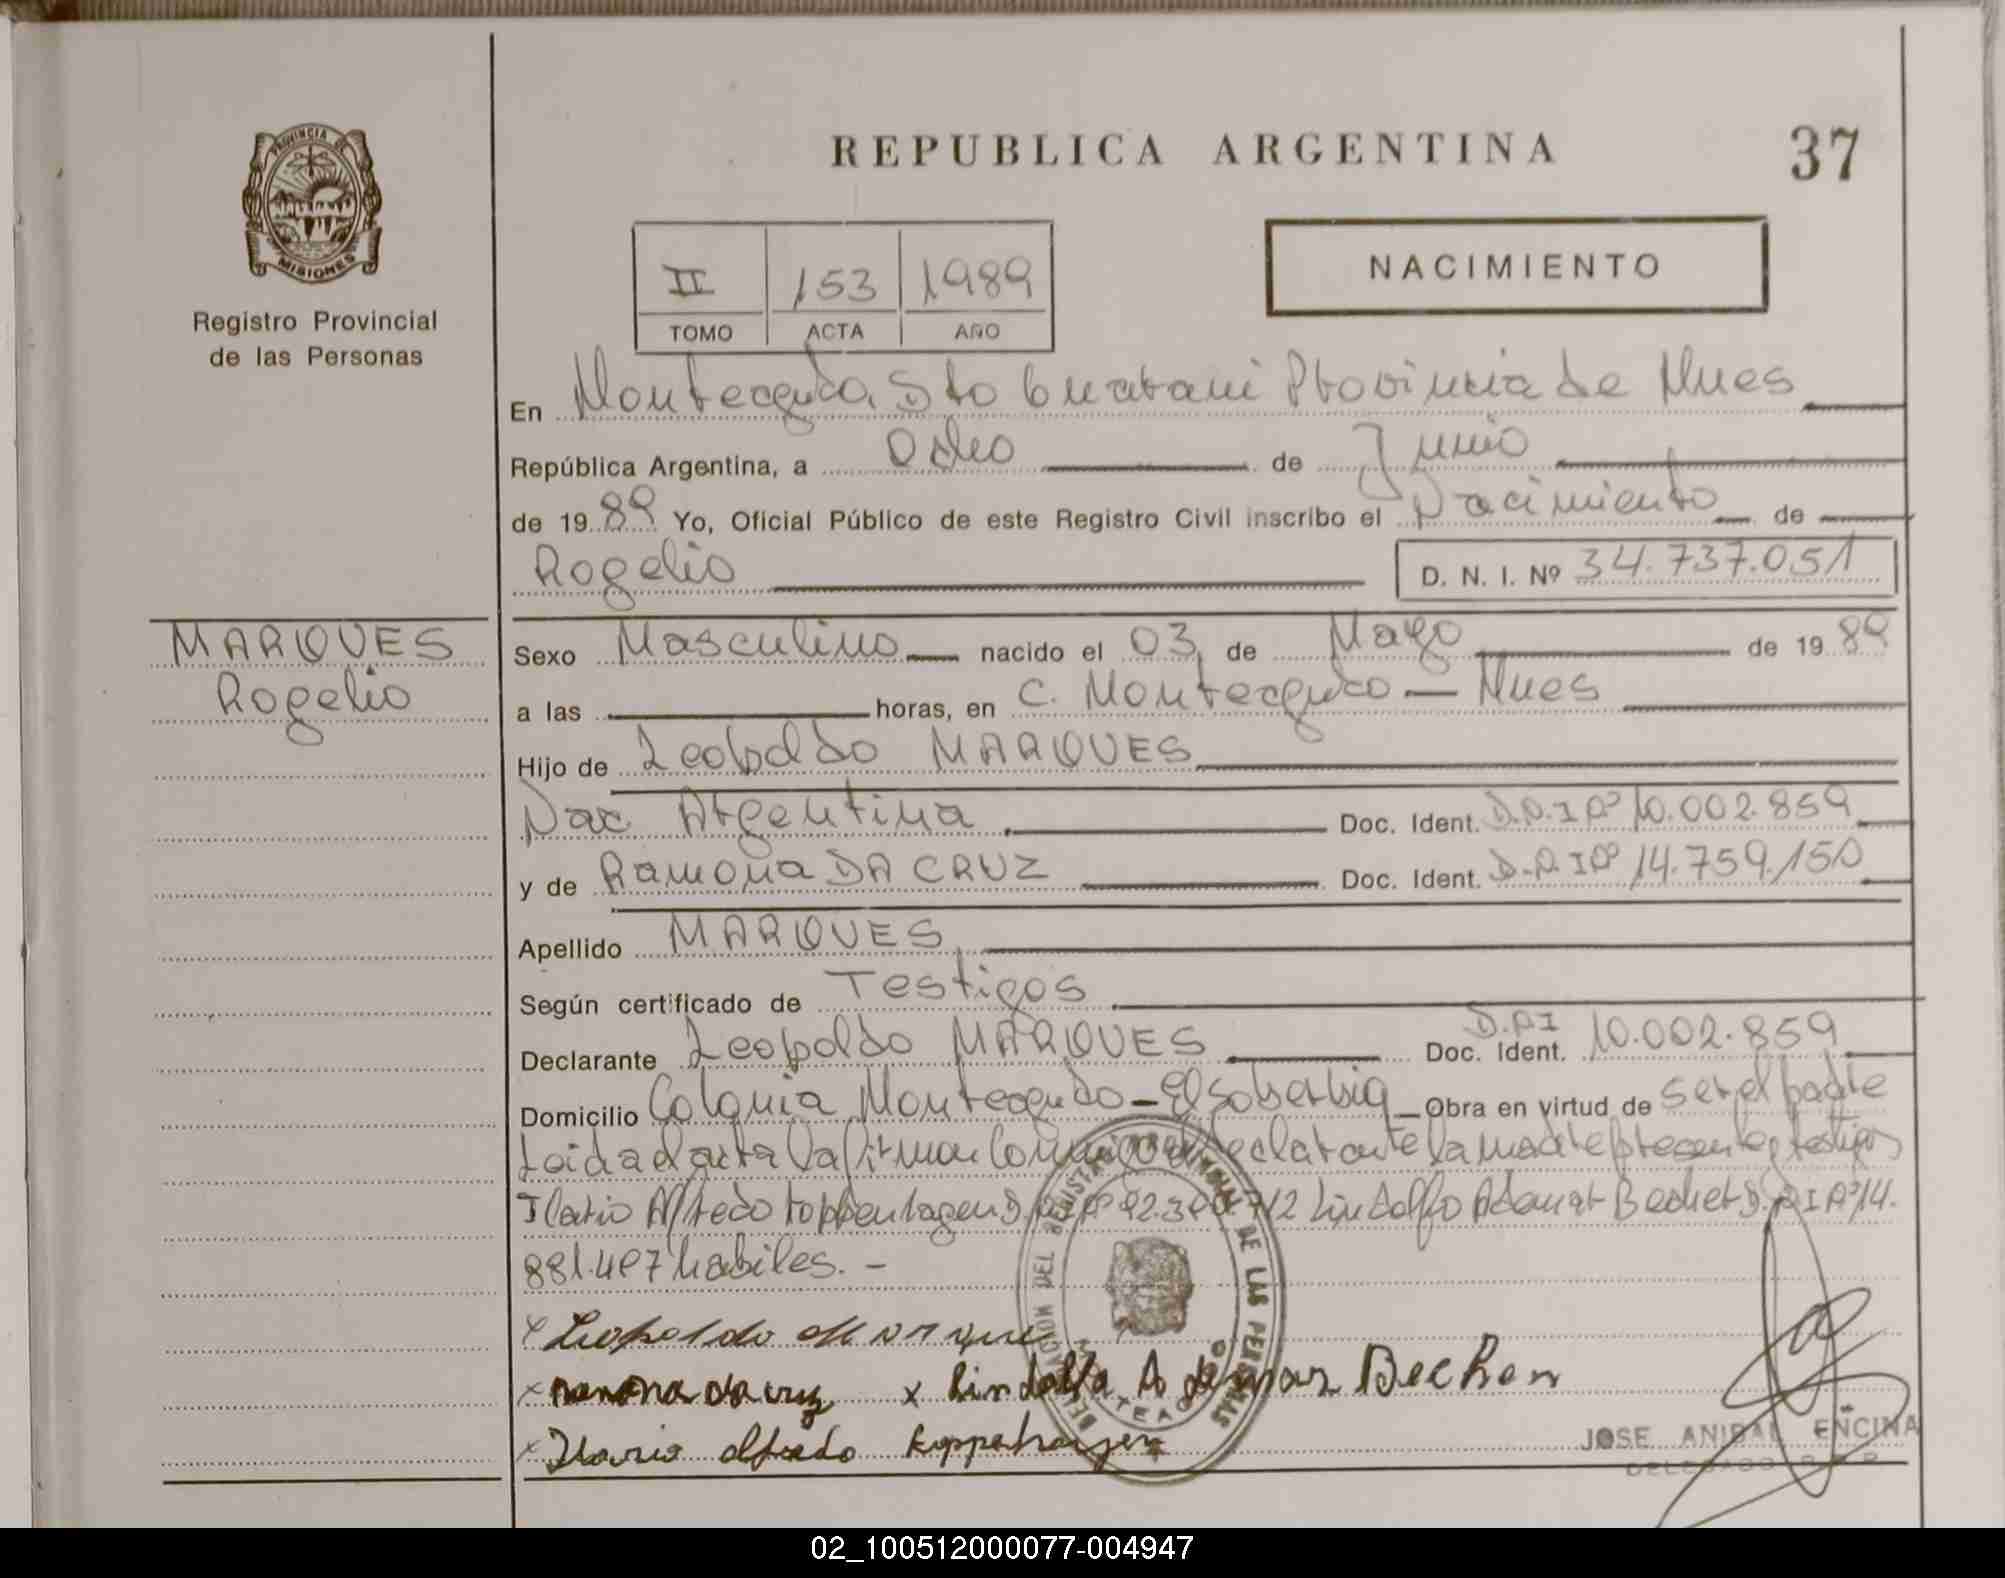 PROVINCIA DE
MISIONES
Registro Provincial
de las Personas
REPUBLICA ARGENTINA
37
II 153 1989
TOMO ACTA AÑO
NACIMIENTO
En Monteagudo, Dto Guarani Provincia de Mnes
República Argentina, a Ocho de Junio
de 19 89 Yo, Oficial Público de este Registro Civil inscribo el Nacimiento de
Rogelio D. N. I. Nº 34.737.051
MARQUES
Rogelio
Sexo Masculino nacido el 03 de Mayo de 19 89
a las horas, en C. Monteagudo - Mnes
Hijo de Leopoldo MARQUES
Nac. Argentina Doc. Ident. D.N.I Nº 10.002.859
y de Ramona DA CRUZ Doc. Ident. D.N.I Nº 14.759.150
Apellido MARQUES
Según certificado de Testigos
Declarante Leopoldo MARQUES Doc. Ident. D.N.I 10.002.859
Domicilio Colonia Monteagudo - El Soberbio Obra en virtud de ser el padre
Leida el acta la firman conmigo el declarante la madre presente y testigos
Ilario Alfredo Koppenhagen D.N.I Nº 92.3 712 Lindolfo Ademar Becher D.N.I Nº 14.
881.497 habiles. -
x Leopoldo Marques
x ramona da cruz x Lindolfo Ademar Becher
x Ilario Alfredo Koppenhagen
DEL REGISTRO PROVINCIAL DE LAS PERSONAS
JOSE ANIBAL ENCINA
DELEGADO R P P
02_100512000077-004947